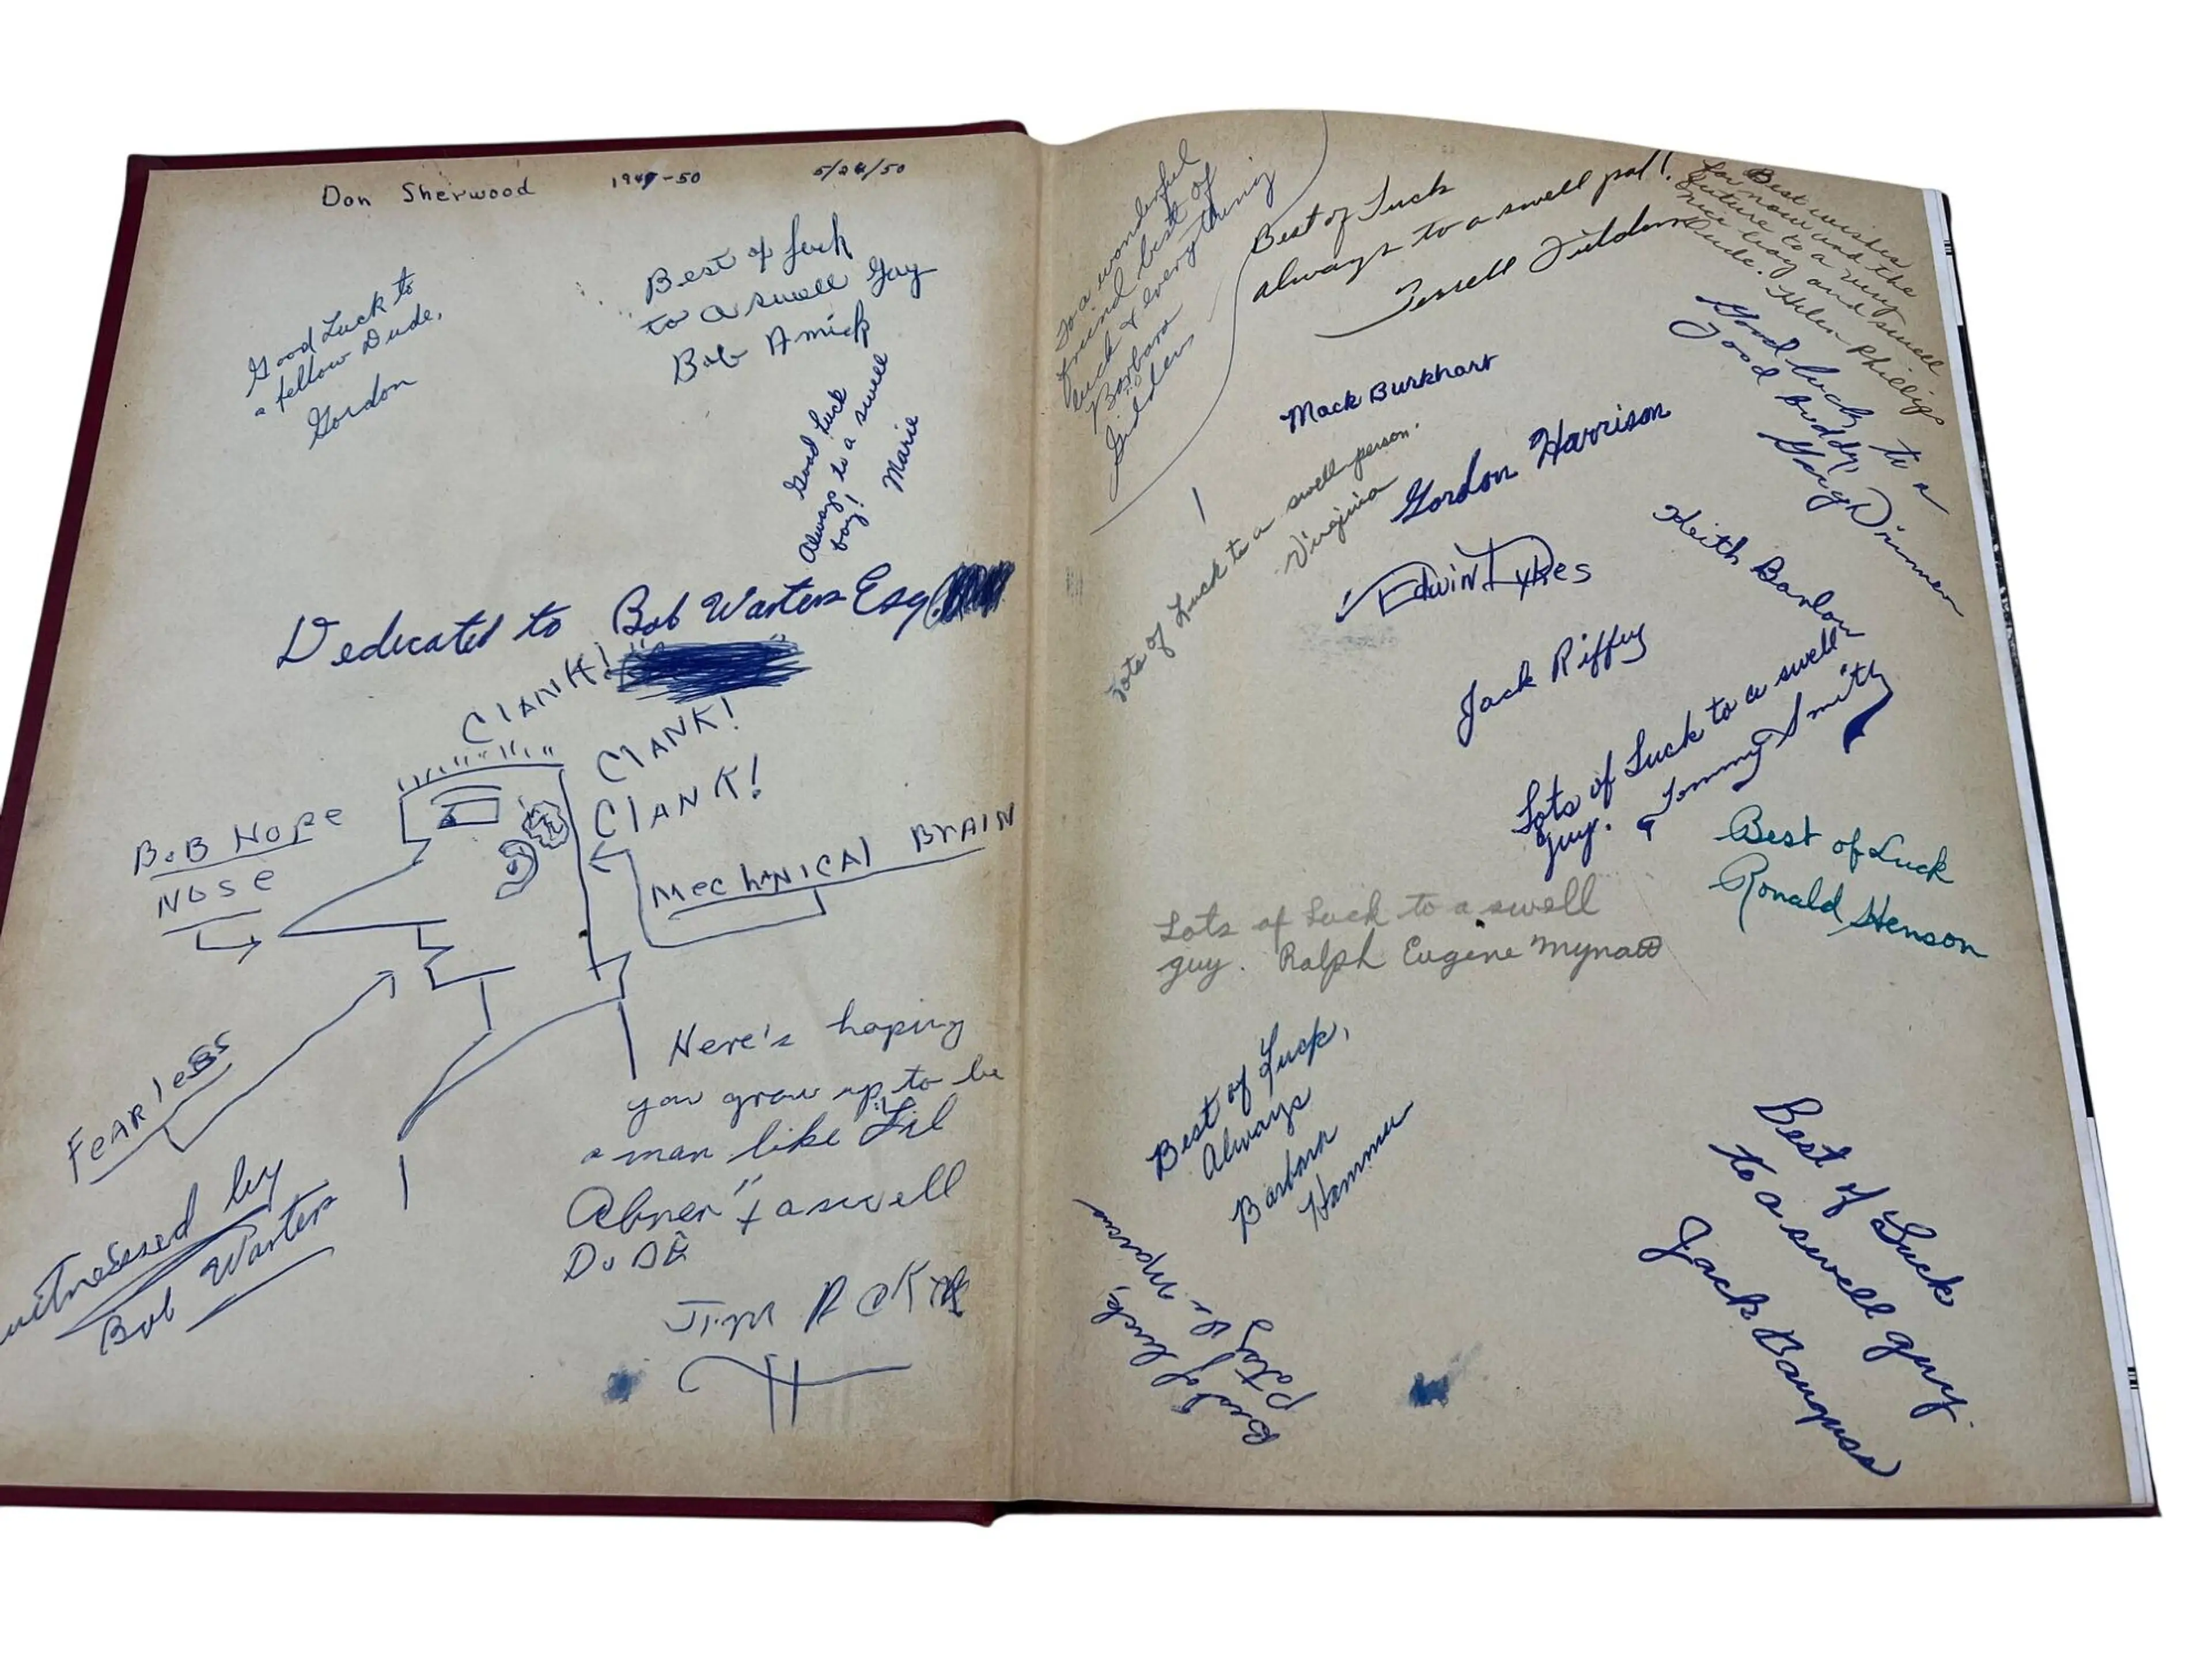 Don Sherwood 1949-50 5/24/50
Good Luck to
a fellow Dude,
Gordon
Best of luck
to a swell Guy
Bob Amick
Good Luck
Always to a swell
boy!
Marie
Dedicated to Bob Warters Esq.
CLANK!
CLANK!
CLANK!
BOB HOPE
NOSE
MechANICAl BrAIN
FeArless
witnessed by
Bob Warters
Here's hoping
you grow up to be
a man like "Lil
Abner" + a swell
DuDE
JIM
To a wonderful
friend best of
luck & everything
Barbara
Best of Luck
always to a swell pal!
Terrell
Best wishes
for now and the
future to a very
nice boy and swell
Dude. Helen Phillips
Good luck to a
good buddy,
Mack Burkhart
Lots of Luck to a swell person.
Virginia
Gordon Harrison
Edwin Dykes
Keith Barlow
Jack Riffey
Lots of Luck to a swell
guy. Tommy Smith
Best of Luck
Ronald Henson
Lots of Luck to a swell
guy. Ralph Eugene Mynatt
Best of Luck,
Always
Barbara
Best of luck,
Patsy
Best of Luck
to a swell guy.
Jack